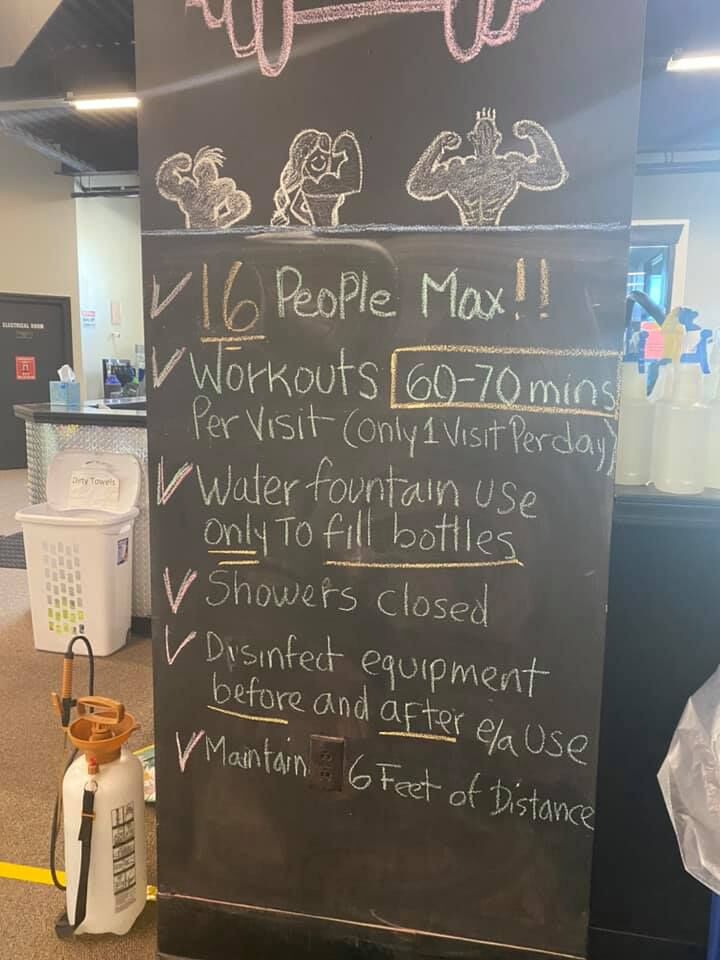 16 People Max!!
ELECTRICAL ROOM
Workouts 60-70 mins
Per Visit (only 1 Visit Per day)
Dirty Towels
Water fountain use
only To fill bottles
Showers closed
Disinfect equipment
before and after e/a Use
Maintain 6 Feet of Distance